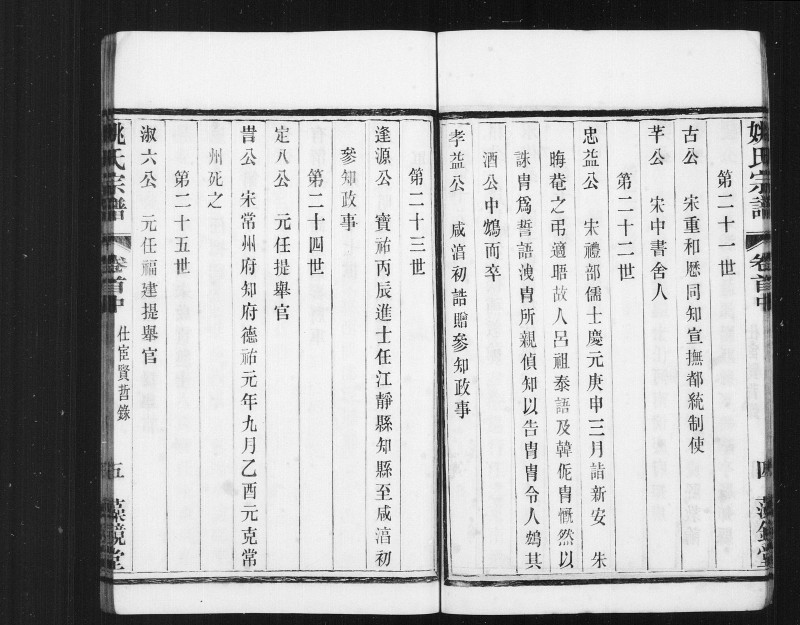 姚氏宗譜 卷首中 四 藻鏡堂
第二十一世
古公 宋重和厯同知宣撫都統制使
芊公 宋中書舍人
第二十二世
忠益公 宋禮部儒士慶元庚申三月詣新安 朱
晦菴之弔適晤故人呂祖泰語及韓侂冑慨然以
誅冑爲誓語洩冑所親偵知以告冑冑令人鴆其
酒公中鴆而卒
孝益公 咸湻初誥贈參知政事
第二十三世
逢源公 寶祐丙辰進士任江靜縣知縣至咸湻初
參知政事
第二十四世
定八公 元任提舉官
旹公 宋常州府知府德祐元年九月乙酉元克常
州死之
第二十五世
淑六公 元任福建提舉官
姚氏宗譜 卷首中 仕宦賢哲錄 五 藻鏡堂